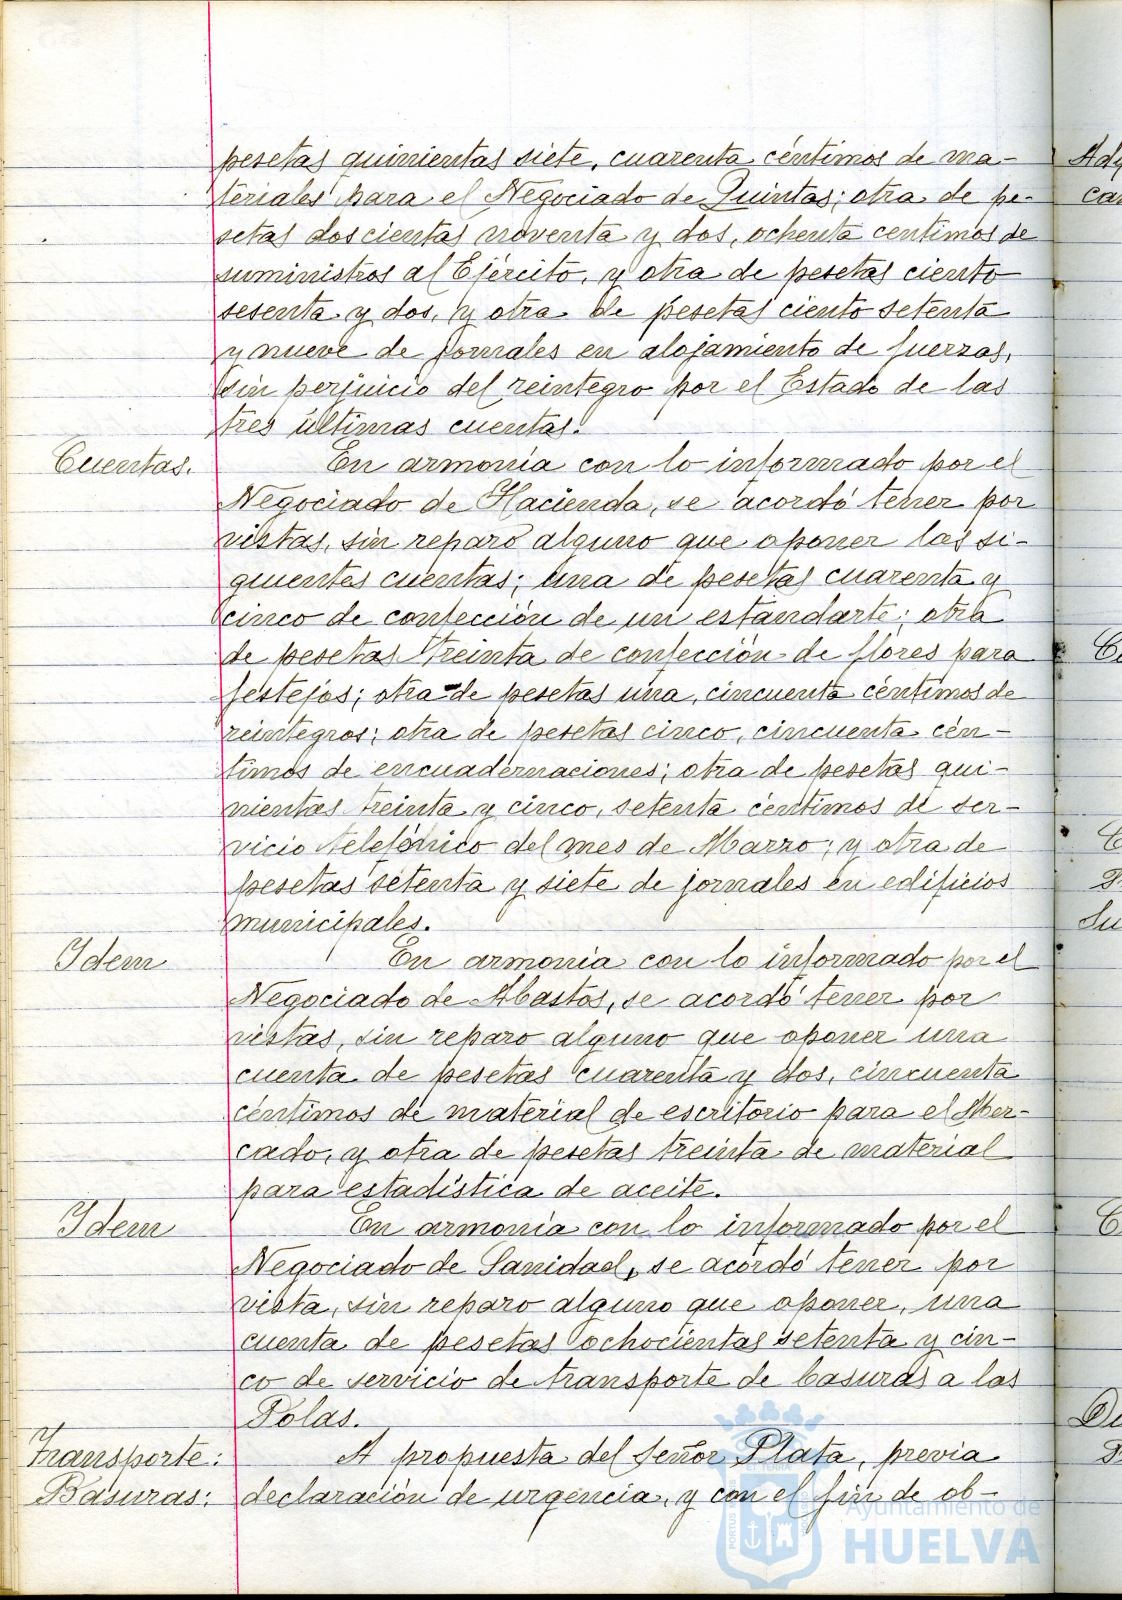 pesetas quinientas siete, cuarenta céntimos de ma-
teriales para el Negociado de Quintas; otra de pe-
setas doscientas noventa y dos, ochenta centimos de
suministros al Ejército, y otra de pesetas ciento
sesenta y dos, y otra de pesetas ciento setenta
y nueve de jornales en alojamiento de fuerzas,
sin perjuicio del reintegro por el Estado de las
tres últimas cuentas.
Cuentas.
En armonía con lo informado por el
Negociado de Hacienda, se acordó tener por
vistas, sin reparo alguno que oponer las si-
guientes cuentas; una de pesetas cuarenta y
cinco de confección de un estandarte; otra
de pesetas treinta de confección de flores para
festejos; otra de pesetas una, cincuenta céntimos de
reintegros; otra de pesetas cinco, cincuenta cén-
timos de encuadernaciones; otra de pesetas qui-
nientas treinta y cinco, setenta céntimos de ser-
vicio telefónico del mes de Marzo; y otra de
pesetas setenta y siete de jornales en edificios
municipales.
Idem
En armonía con lo informado por el
Negociado de Abastos, se acordó tener por
vistas, sin reparo alguno que oponer una
cuenta de pesetas cuarenta y dos, cincuenta
céntimos de material de escritorio para el Mer-
cado, y otra de pesetas treinta de material
para estadística de aceite.
Idem
En armonía con lo informado por el
Negociado de Sanidad, se acordó tener por
vista, sin reparo alguno que oponer, una
cuenta de pesetas ochocientas setenta y cin-
co de servicio de transporte de basuras a las
Polas.
Transporte:
Basuras:
A propuesta del Señor Plata, previa
declaración de urgencia, y con el fin de ob-
Ayuntamiento de
HUELVA